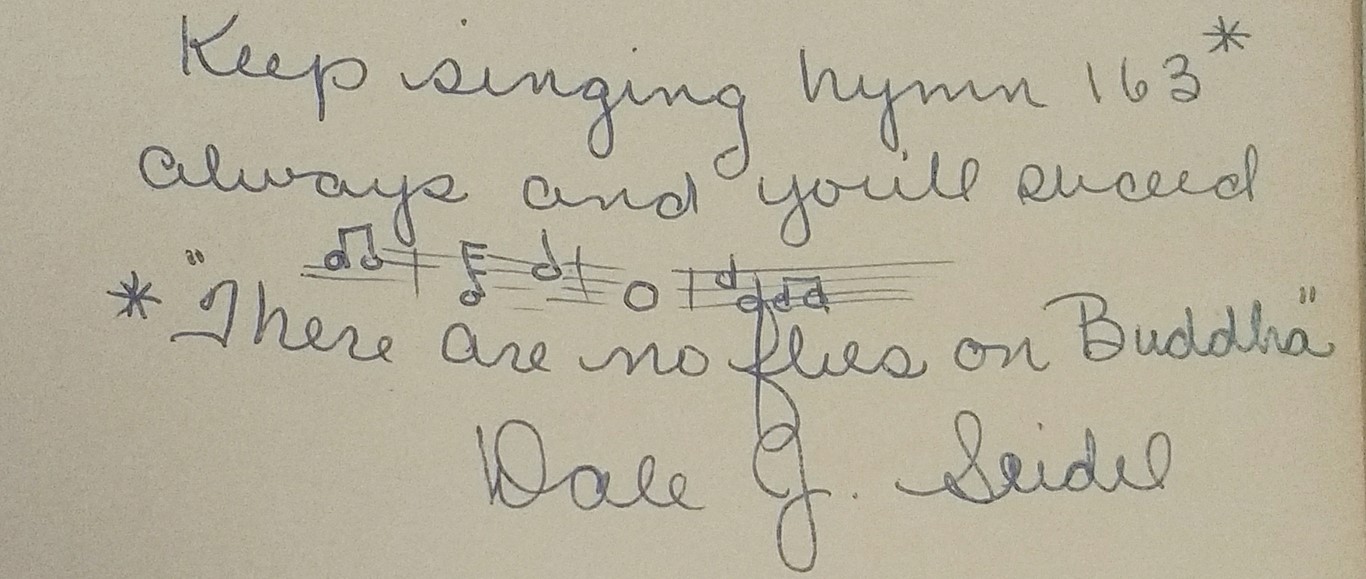 Keep singing hymn 163*
always and you'll suceed
* "There are no flies on Buddha"
Dale J. Seidel